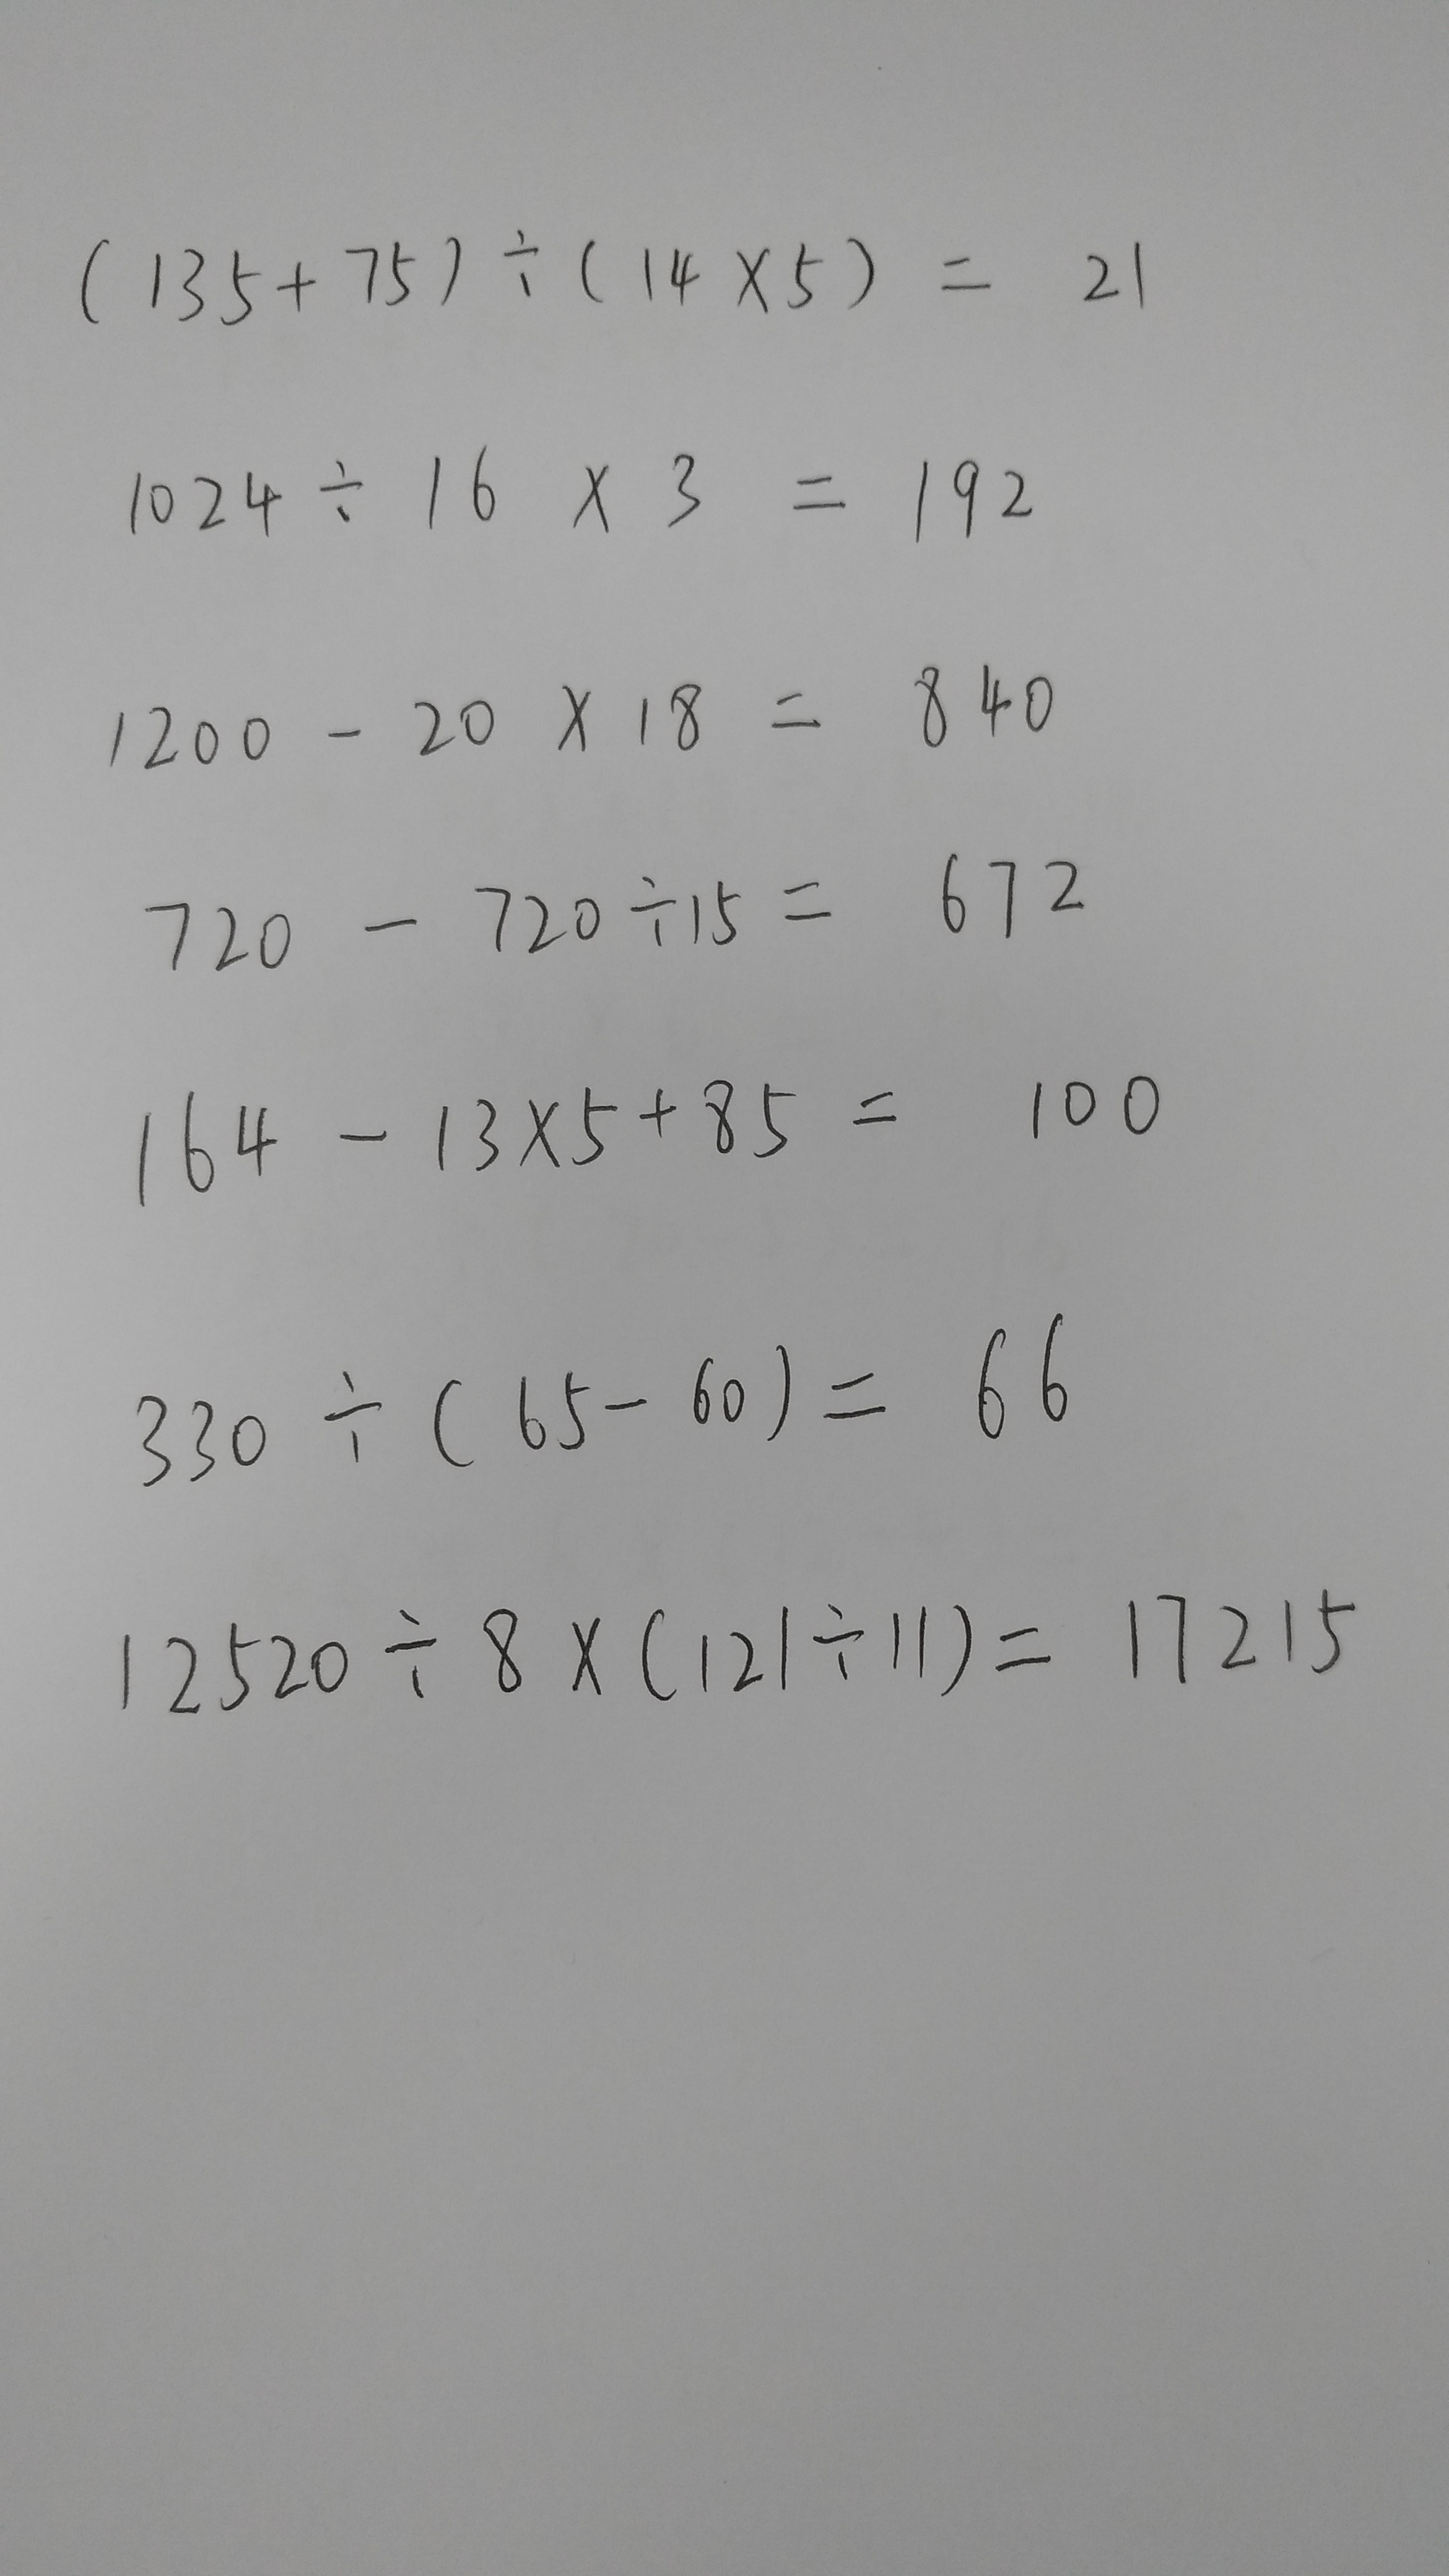 (135+75)÷(14×5) = 21
1024÷16×3 = 192
1200-20×18 = 840
720-720÷15 = 672
164-13×5+85 = 100
330÷(65-60) = 66
12520÷8×(121÷11) = 17215